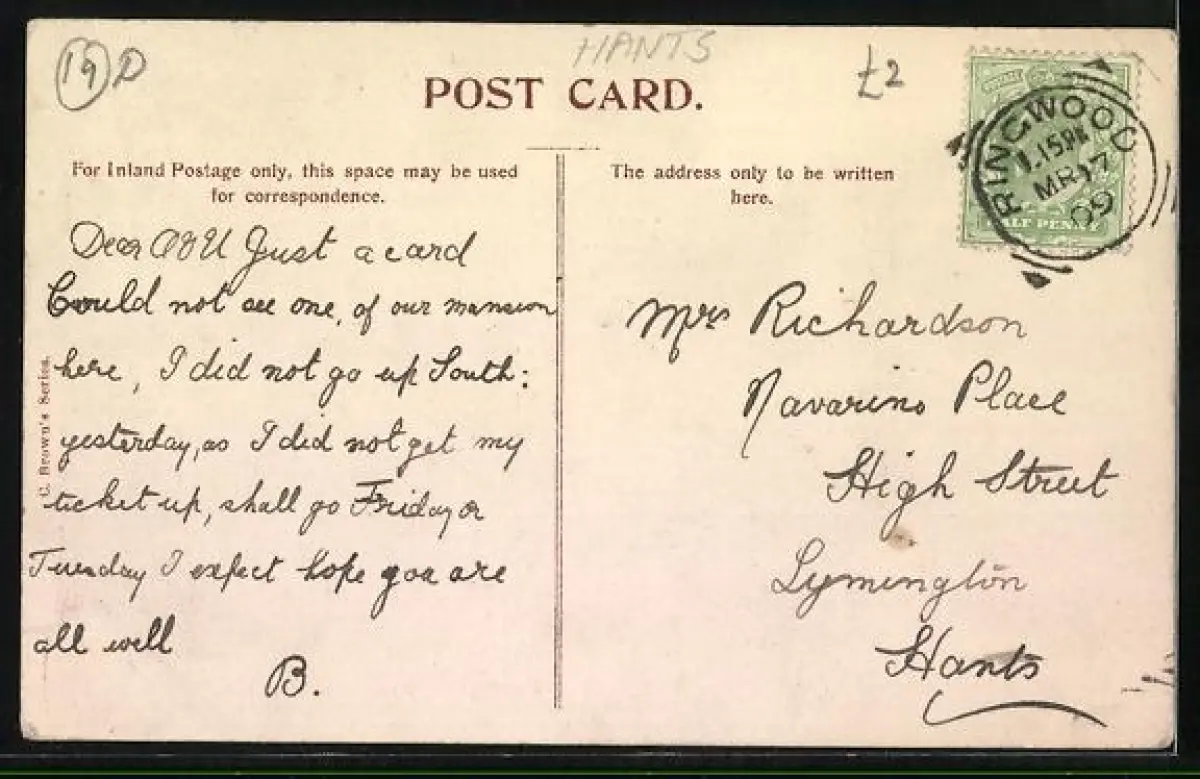 19 D
HANTS
£2
POST CARD.
For Inland Postage only, this space may be used
for correspondence.
The address only to be written
here.
RINGWOOD
1.15PM
MR 17
09
HALF PENNY
Dear Just a card
Could not see one, of our mansion
here, I did not go up South:
yesterday, as I did not get my
ticket up, shall go Friday or
Tuesday I expect hope you are
all well
B.
C. Brown's Series.
Mrs Richardson
Navarino Place
High Street
Lymington
Hants